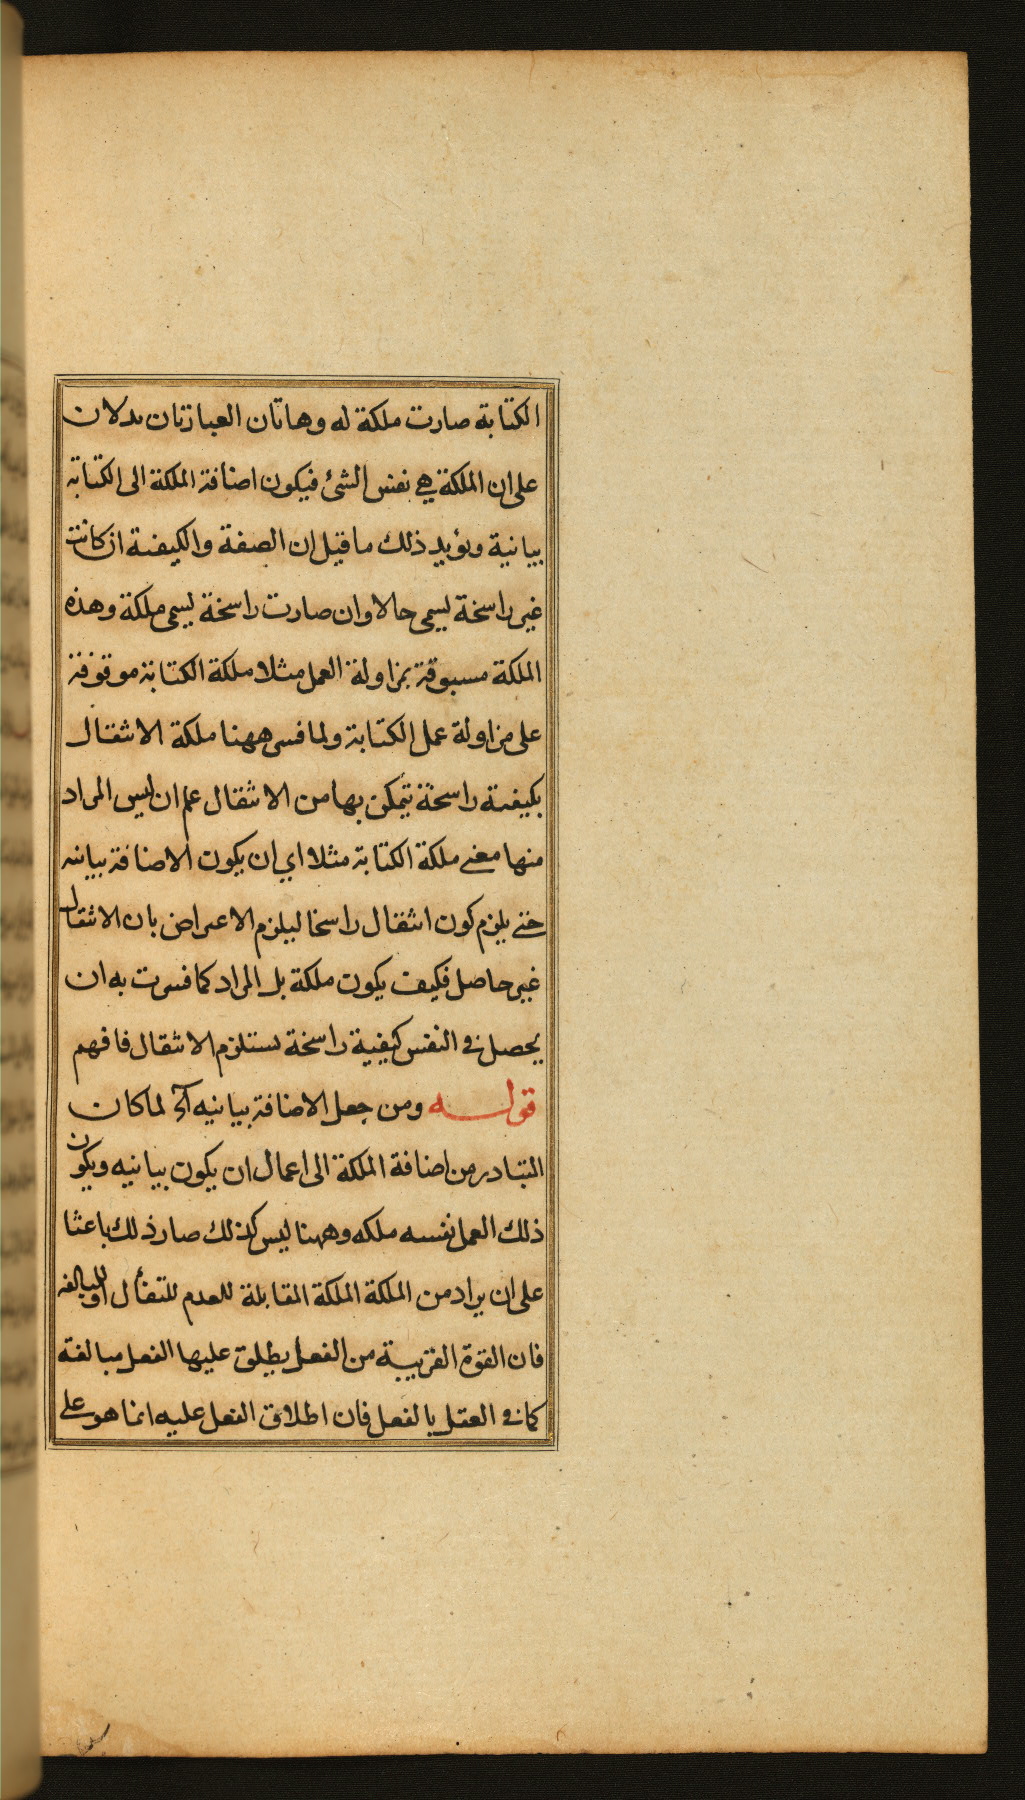 الكتابة صارت ملكة له وهاتان العبارتان يدلان
على ان الملكة هي نفس الشئ فيكون اضافة الملكة الى الكتابة
بيانية ويؤيد ذلك ما قيل ان الصفة والكيفية ان كانت
غير راسخة يسمى حالا وان صارت راسخة يسمى ملكة وهذه
الملكة مسبوقة بمزاولة العمل مثلا ملكة الكتابة موقوفة
على مزاولة عمل الكتابة ولما فسر ههنا ملكة الانتقال
بكيفية راسخة يتمكن بها من الانتقال علم ان ليس المراد
منها معنى ملكة الكتابة مثلا اي ان يكون الاضافة بيانيه
حتى يلزم كون انتقال راسخا ليلزم الاعتراض بان الانتقال
غير حاصل فكيف يكون ملكة بل المراد كما فسرت به ان
يحصل في النفس كيفية راسخة يستلزم الانتقال فافهم
قوله ومن جعل الاضافة بيانيه آه لما كان
المتبادر من اضافة الملكة الى اعمال ان يكون بيانيه ويكون
ذلك العمل نفسه ملكه وههنا ليس كذلك صار ذلك باعثا
على ان يراد من الملكة الملكة المقابلة للعدم للتفأل او للمبالغه
فان القوة القريبة من الفعل يطلق عليها الفعل مبالغة
كما في العقل بالفعل فان اطلاق الفعل عليه انما هو على